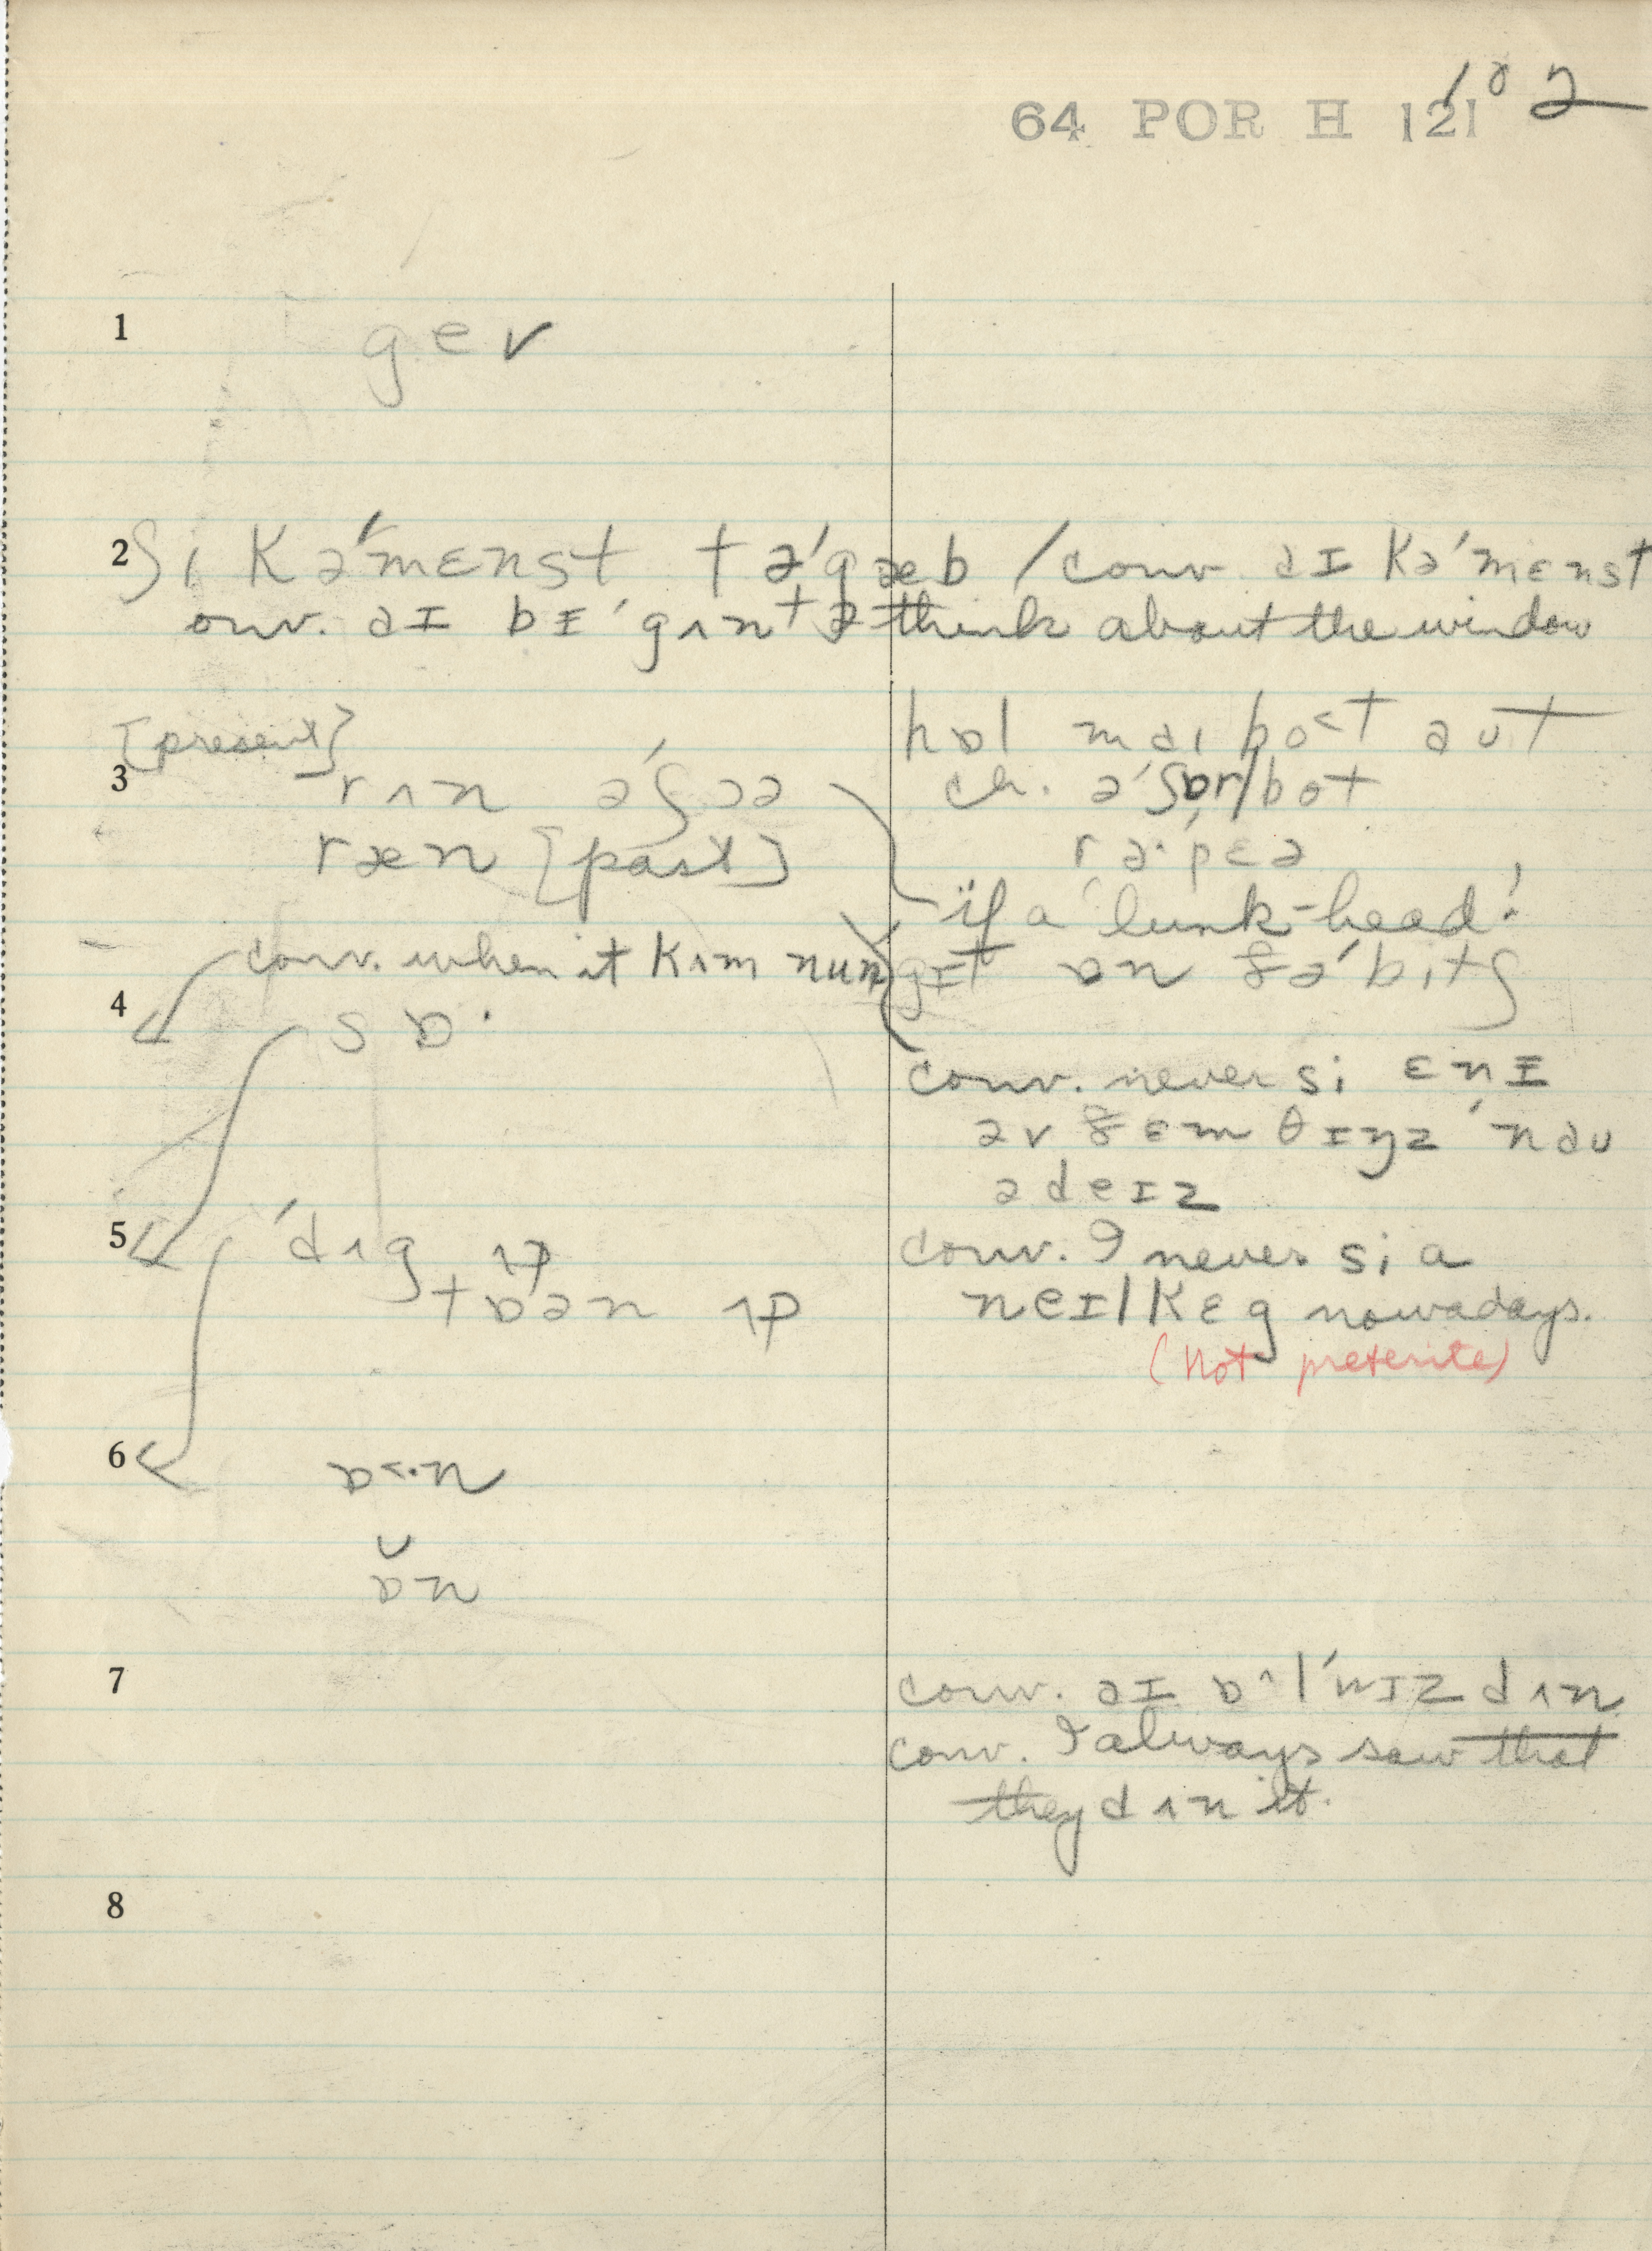 102
64 POR H 121
1 gev
2 ʃi kə'mɛnst tə'gæb / conv. aɪ kə'mɛnst
onv. aɪ bɪ'gʌn tə think about the window
[present]
3 rʌn ə'ʃɔə
ræn [past]
conv. when it kʌm nun
4 sɒ·
5 'dʌg ʌp
tɒən ʌp
6 ɒ<·n
ɒ̆n
7
8
hɒl mai bo<t aut
ch. ə'ʃɒr/bot
rə'pɛə
if a lunk-head!
gɪt ɒn ðə'bɪtʃ
conv. never si ɛnɪ
əv ðɛm θɪŋz 'nau
ədeɪz
conv. I never si a
neɪl kɛg nowadays.
(not preterite)
conv. aɪ ɒ^l'wɪz dʌn
conv. I always saw that
they dʌn it.